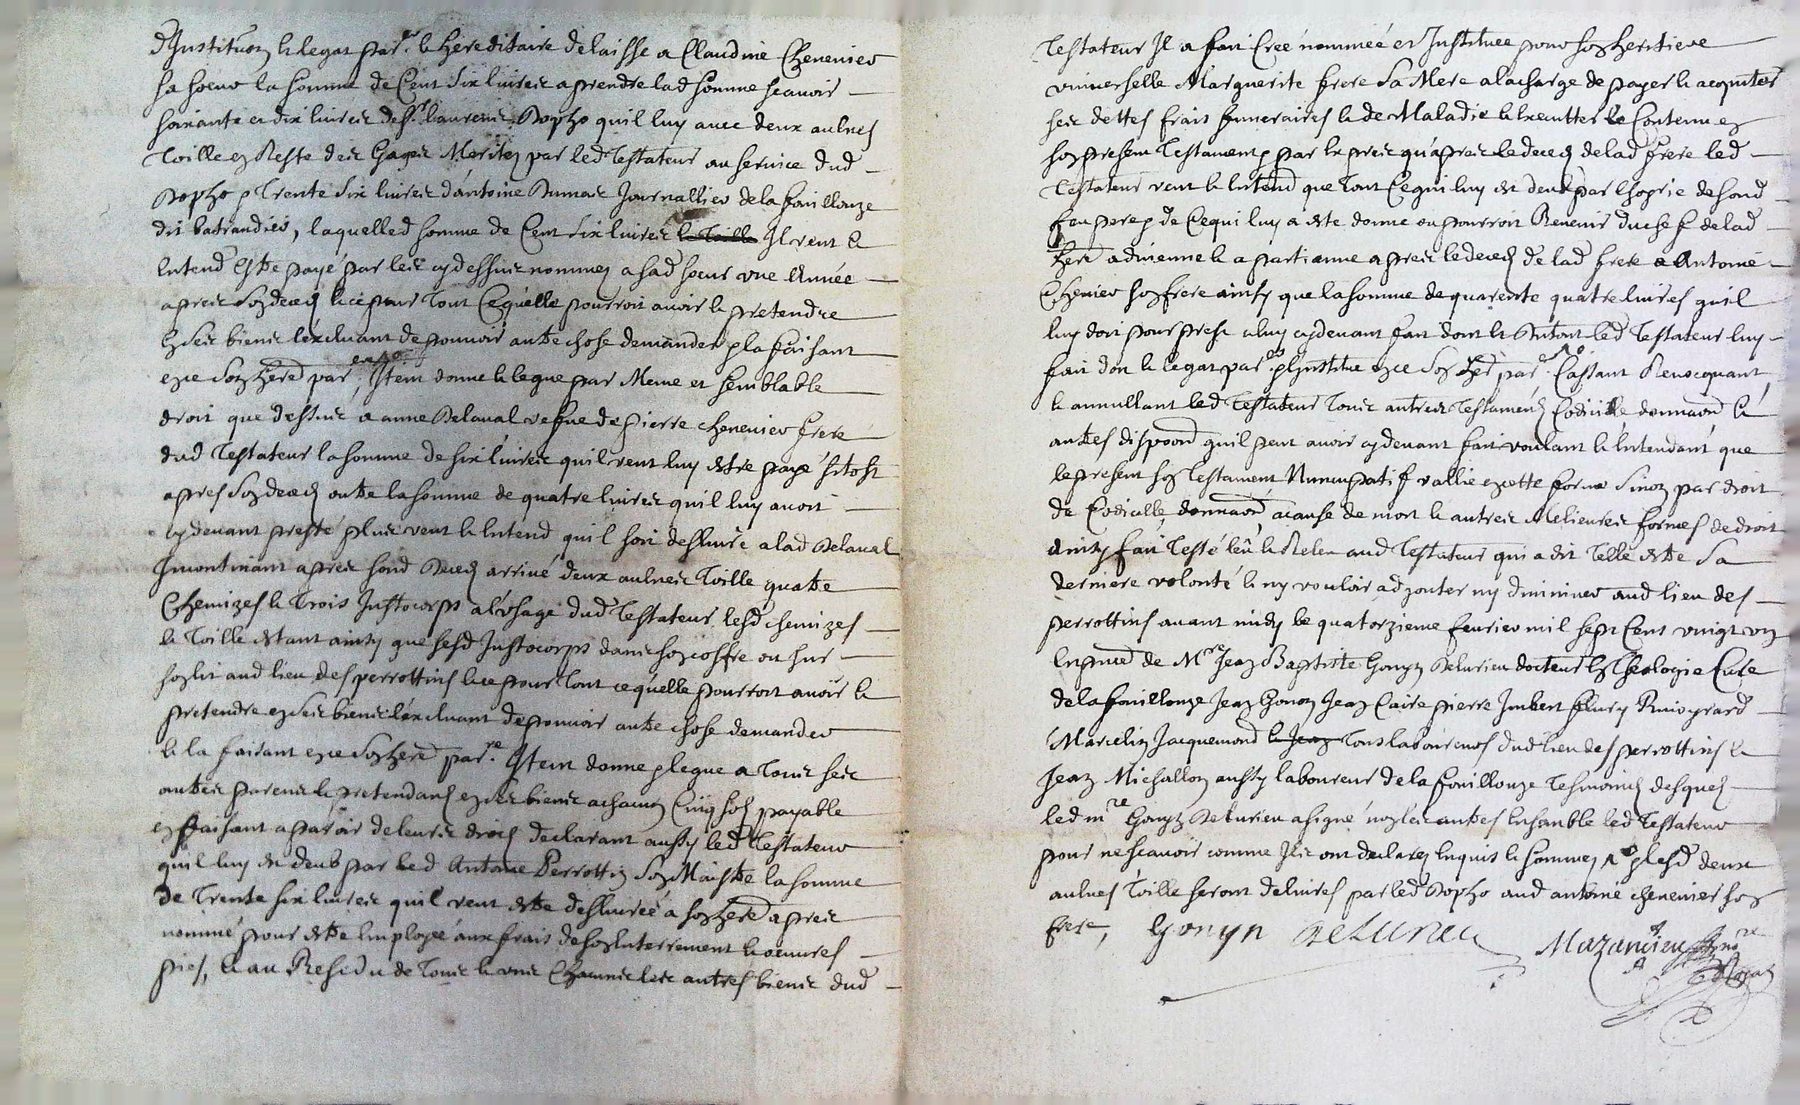 d'Instituon et legat par.re et hereditaire delaisse a Claudine Chenevier
sa soeur la somme de Cent six livres a prendre lad somme scavoir
soixante et dix livres de sr. laurens Dopzo quil luy avec deux aulnes
Toille en Reste des Gages Merites par led Testateur au service dud
Dopzo et Trente six livres d'antoine Dumas Journallier de la fouillouze
dit batrandier, laquelled somme de Cent six livres et Toille Il veut et
Entend Estre payé par les cy dessus nommez a sad soeur une Année
apres son deces et ce pour Tout Ce quelle pourroit avoir et pretendre
en ses biens l'excluant de pouvoir autre chose demander et la faisant
en ce son hered par.re Item donne et legue par Meme et semblable
droit que dessus a anne Delaval vefve de pierre chenevier frere
dud Testateur la somme de six livres quil veut luy estre payé sitost
apres son deces outre la somme de quatre livres quil luy avoit
cy devant presté plus veut et Entend quil soit deslivré a lad Delaval
Incontinant apres sond Deces arrivé deux aulnes Toille quatre
Chemizes et Trois Justocorps a l'usage dud Testateur lesd chemizes
et Toille estant ainsy que sesd Justocorps dans son coffre ou sur
son lit aud lieu des perrottins et ce pour Tout ce quelle pourroit avoir et
pretendre en ses biens l'excluant de pouvoir autre chose demander
et la faisant en ce son hered par.re Item donne et legue a Tous ses
autres parens et pretendans en ses biens a chacun Cinq sols payable
en faisant aparoir de leurs droits declarant aussy led Testateur
quil luy est deub par led Antoine Perrottin son Maistre la somme
de Trente six livres quil veut estre deslivrée a son hered apres
nommé pour estre Employée aux frais de son Enterrement et oeuvres
pies, et au Residu de Tous et uns Chacuns ses autres biens dud
Testateur Il a fait Creé nommeé et Instituee pour son heritiere
universelle Marguerite frere sa Mere a la charge de payer et acquitter
ses dettes frais funneraires et de Maladie et Executter le Contenu en
son present Testament par expres qu'apres le deces de lad frere led
Testateur veut et Entend que Tout Ce qui luy est deub par l'hoyrie de sond
feu pere et de Ce qui luy a este donné ou pourroit Revenir du chef de lad
frere advienne et apartienne apres le deces de lad frere a Antoine
Chenevier son frere ainsy que la somme de quarente quatre livres quil
luy doit pour prest a luy cy devant fait dont et du tout led Testateur luy
fait don et legat par.re et l'institue en ce son her par.re Cassant Revocquant
et annullant led Testateur Tous autres Testaments Codicille donnaon et
autres dispoon quil peut avoir cy devant fait voulant et Entendant que
le present son Testament Nuncupatif vallie en cette forme sinon par droit
de Codicille donnaon a cause de mort et autres Melieures formes de droit
ainsy fait Testé leu et Releu aud Testateur qui a dit Telle estre sa
derniere volonté et ny vouloir adjouter ny diminuer aud lieu des
perrottins avant midy le quatorzieme fevrier mil sept Cens vingt un
En pnce de Mre Jean Baptiste Gonyn Delurieu docteur En Theologie Cure
de la fouillouze Jean Gonon Jean Claire pierre Imbert fleury Rivoyrard
Marcelin Jacquemond et Jean Tous laboureurs dud lieu des perrottins et
Jean Michallon aussy laboureur de la fouillouze Tesmoins desquels
led mre Gonyn Delurieu a signé non les autres Ensamble led Testateur
pour ne scavoir comme Ils ont declaré Enquis et sommez et lesd deux
aulnes Toille seront delivrés par led Dopzo aud antoine chenevier son
frere,
Gonyn Delurieu
Mazancieu